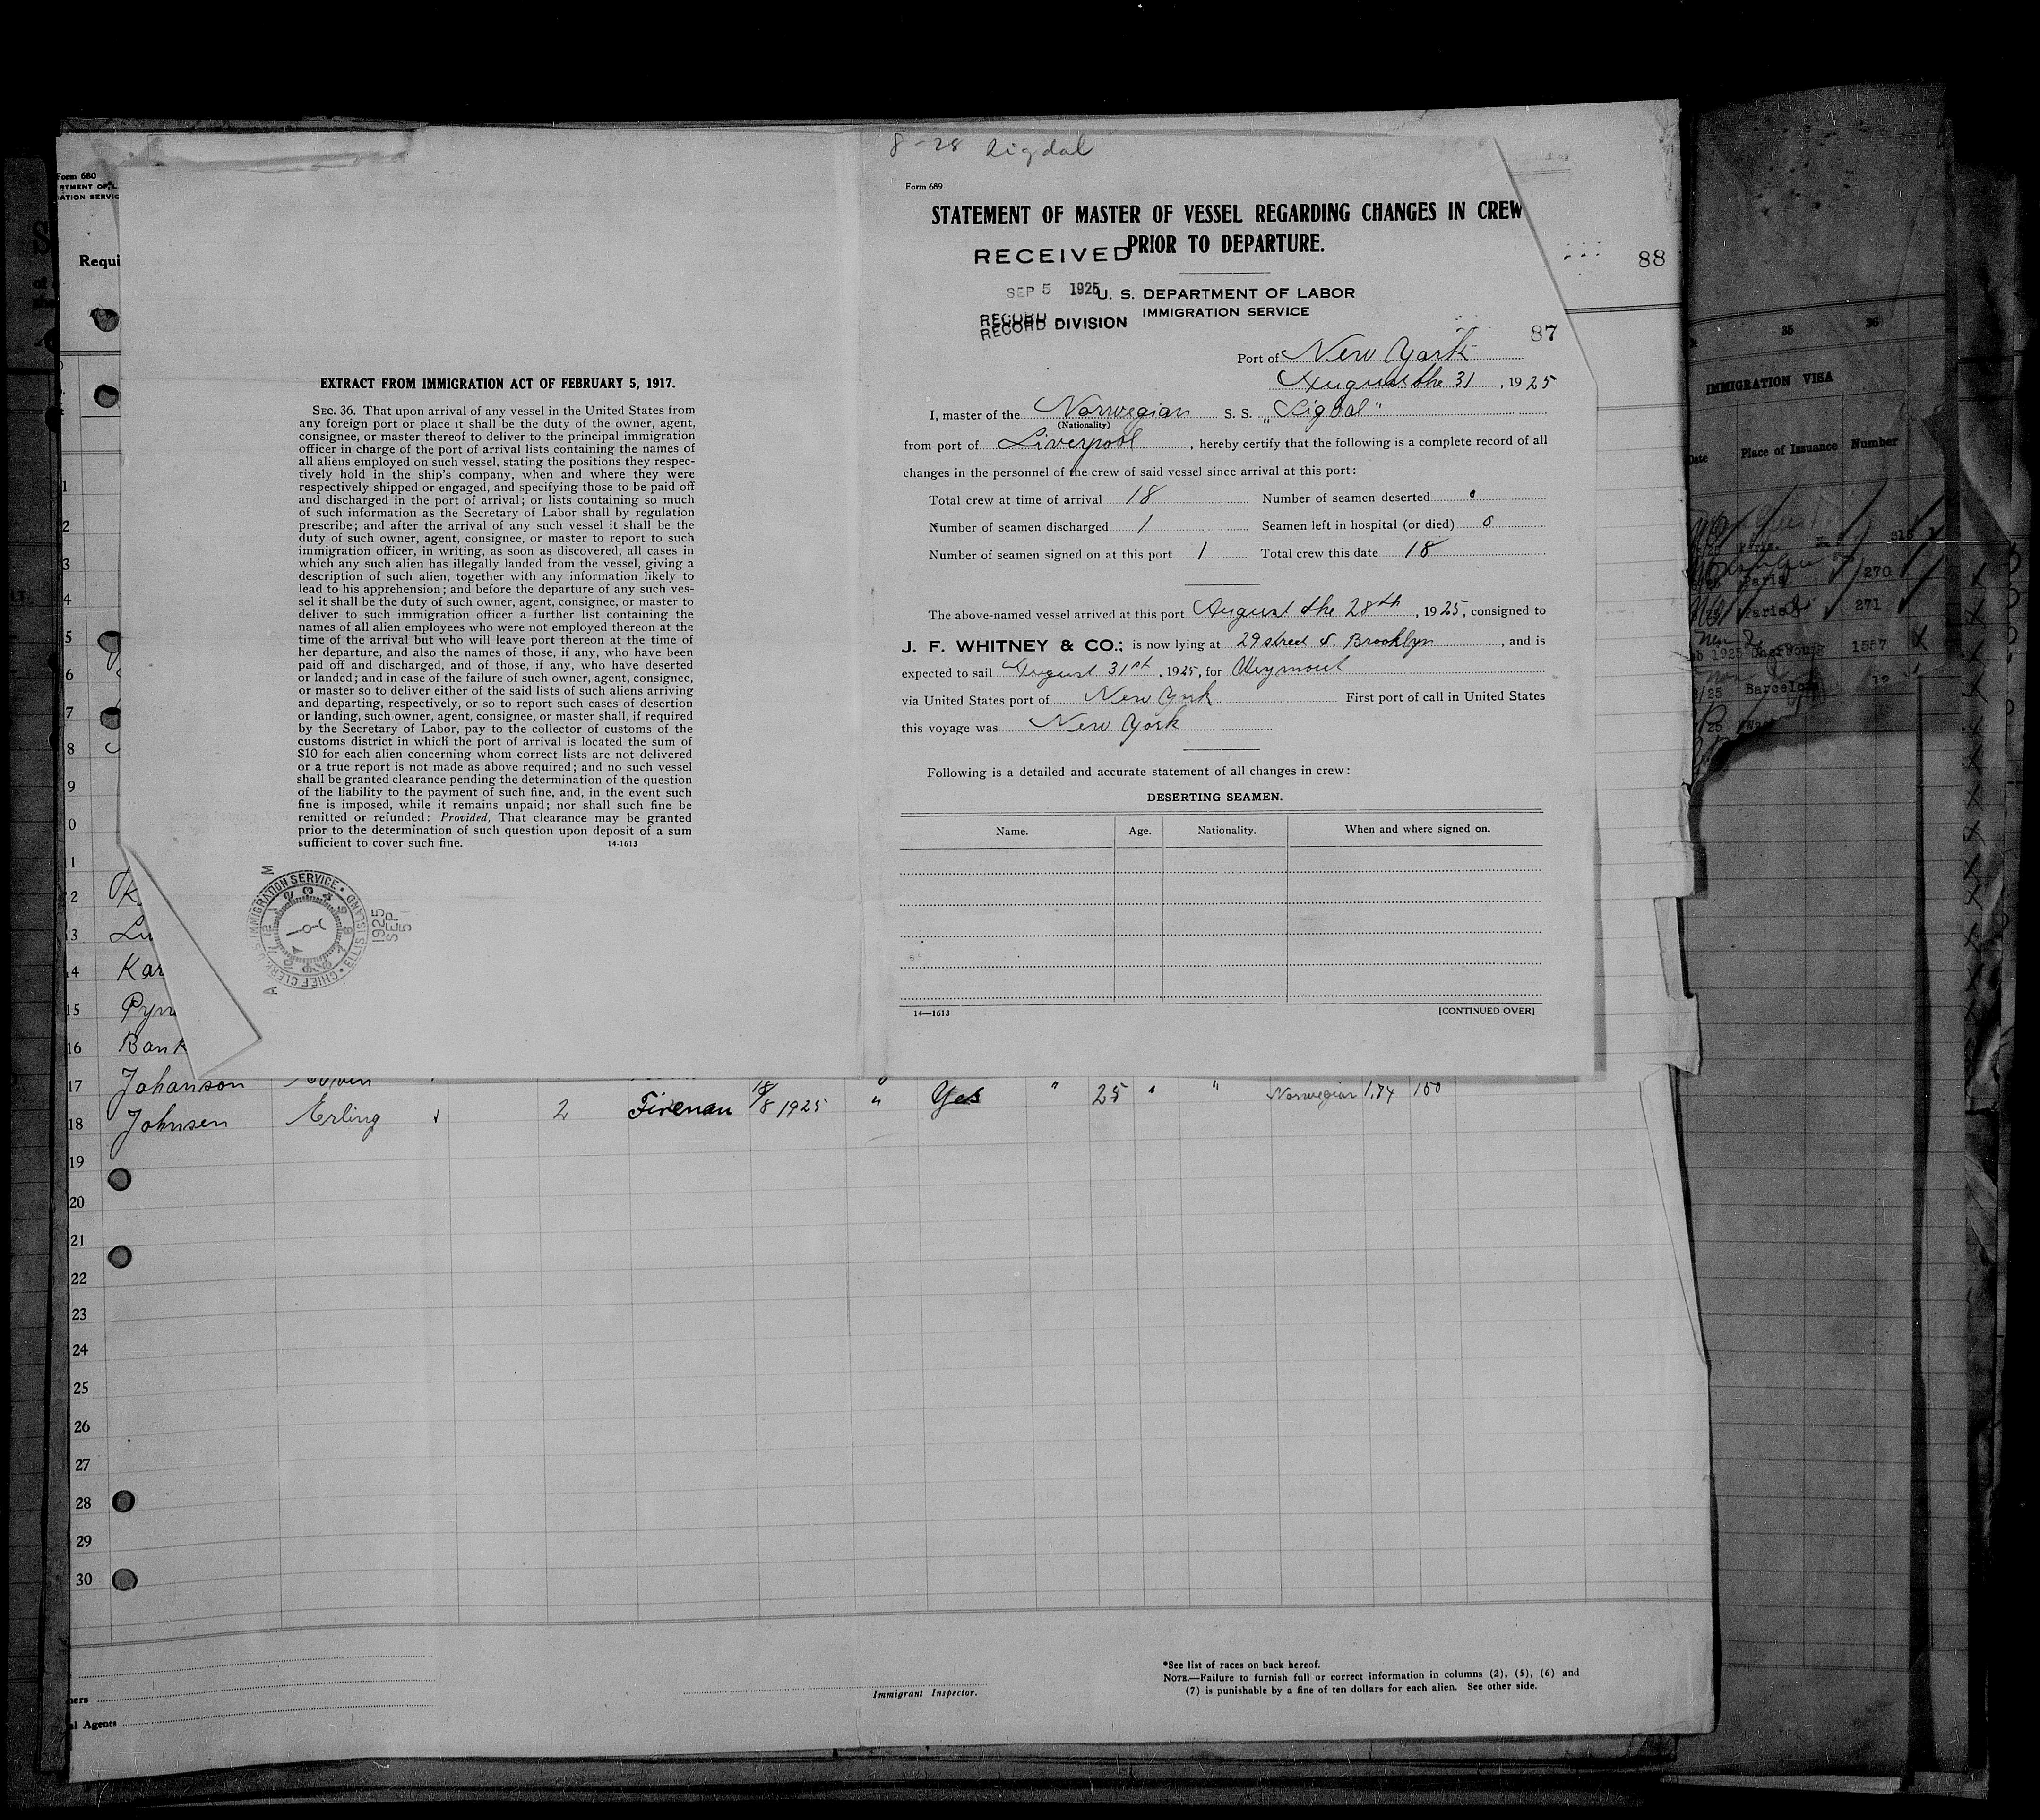 8-28 Sigdal
Form 689
STATEMENT OF MASTER OF VESSEL REGARDING CHANGES IN CREW
PRIOR TO DEPARTURE.
RECEIVED
SEP 5 1925
U. S. DEPARTMENT OF LABOR
IMMIGRATION SERVICE
RECORD
RECORD DIVISION
87
88
Port of New York
August the 31, 1925
I, master of the Norwegian S. S. "Sigdal"
(Nationality)
from port of Liverpool, hereby certify that the following is a complete record of all
changes in the personnel of the crew of said vessel since arrival at this port:
Total crew at time of arrival 18 Number of seamen deserted 0
Number of seamen discharged 1 Seamen left in hospital (or died) 0
Number of seamen signed on at this port 1 Total crew this date 18
The above-named vessel arrived at this port August the 28th, 1925, consigned to
J. F. WHITNEY & CO.; is now lying at 29 street S. Brooklyn, and is
expected to sail August 31st, 1925, for Weymout
via United States port of New York First port of call in United States
this voyage was New York
Following is a detailed and accurate statement of all changes in crew:
DESERTING SEAMEN.
Name. Age. Nationality. When and where signed on.
14—1613 [CONTINUED OVER]
EXTRACT FROM IMMIGRATION ACT OF FEBRUARY 5, 1917.
SEC. 36. That upon arrival of any vessel in the United States from
any foreign port or place it shall be the duty of the owner, agent,
consignee, or master thereof to deliver to the principal immigration
officer in charge of the port of arrival lists containing the names of
all aliens employed on such vessel, stating the positions they respec-
tively hold in the ship's company, when and where they were
respectively shipped or engaged, and specifying those to be paid off
and discharged in the port of arrival; or lists containing so much
of such information as the Secretary of Labor shall by regulation
prescribe; and after the arrival of any such vessel it shall be the
duty of such owner, agent, consignee, or master to report to such
immigration officer, in writing, as soon as discovered, all cases in
which any such alien has illegally landed from the vessel, giving a
description of such alien, together with any information likely to
lead to his apprehension; and before the departure of any such ves-
sel it shall be the duty of such owner, agent, consignee, or master to
deliver to such immigration officer a further list containing the
names of all alien employees who were not employed thereon at the
time of the arrival but who will leave port thereon at the time of
her departure, and also the names of those, if any, who have been
paid off and discharged, and of those, if any, who have deserted
or landed; and in case of the failure of such owner, agent, consignee,
or master so to deliver either of the said lists of such aliens arriving
and departing, respectively, or so to report such cases of desertion
or landing, such owner, agent, consignee, or master shall, if required
by the Secretary of Labor, pay to the collector of customs of the
customs district in which the port of arrival is located the sum of
$10 for each alien concerning whom correct lists are not delivered
or a true report is not made as above required; and no such vessel
shall be granted clearance pending the determination of the question
of the liability to the payment of such fine, and, in the event such
fine is imposed, while it remains unpaid; nor shall such fine be
remitted or refunded: Provided, That clearance may be granted
prior to the determination of such question upon deposit of a sum
sufficient to cover such fine. 14-1613
CHIEF CLERK U.S. IMMIGRATION SERVICE ELLIS ISLAND
1925
SEP
5
Form 680
Requi
1
2
3
4
5
6
7
8
9
0
1
2 K
3 Lu
4 Kar
15 Pyn
16 Bank
17 Johanson
18 Johnsen Erling 2 Fireman 18/8 1925 " Yes " 25 " " Norwegian 1,74 150
19
20
21
22
23
24
25
26
27
28
29
30
al Agents
Immigrant Inspector.
*See list of races on back hereof.
NOTE.—Failure to furnish full or correct information in columns (2), (5), (6) and
(7) is punishable by a fine of ten dollars for each alien. See other side.
35 36
IMMIGRATION VISA
Date Place of Issuance Number
Paris 270
Paris 271
1925 Cherbourg 1557
/25 Barcelona 12